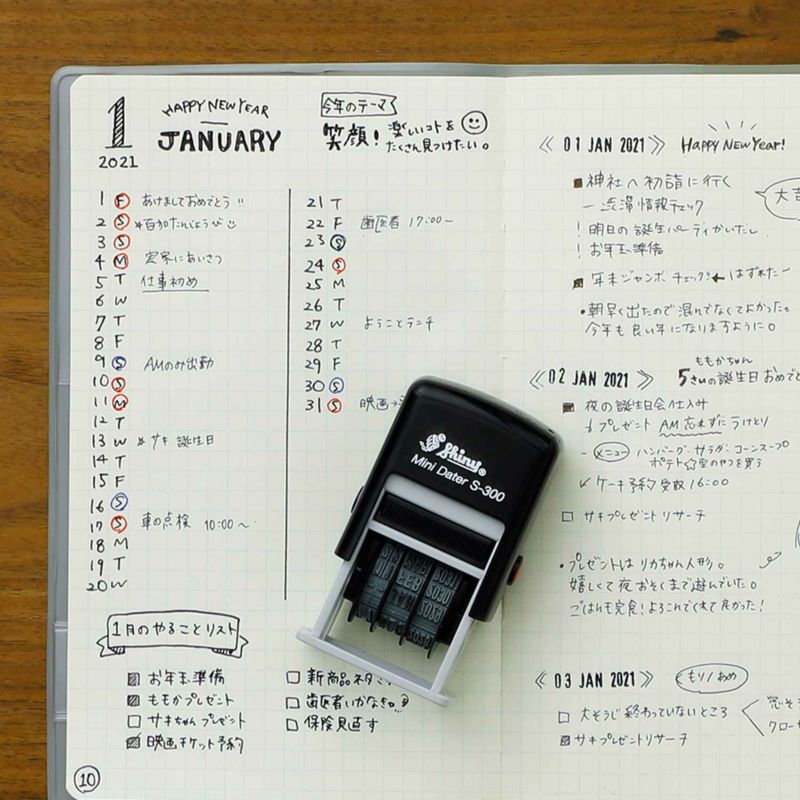 1
2021
HAPPY NEW YEAR
JANUARY
今年のテーマ
笑顔!
楽しいコトを
たくさん見つけたい。
1 F あけましておめでとう!!
2 S
3 S
4 M 実家にあいさつ
5 T 仕事初め
6 W
7 T
8 F
9 S AMのみ出勤
10 S
11 M
12 T
13 W * サキ 誕生日
14 T
15 F
16 S
17 S 車の点検 10:00~
18 M
19 T
20 W
21 T
22 F 歯医者 17:00-
23 S
24 S
25 M
26 T
27 W ようことランチ
28 T
29 F
30 S
31 S 映画→
1月のやることリスト
お年玉準備
ももかプレゼント
サキちゃんプレゼント
映画チケット予約
新商品ネタ
歯医者いかなきゃ
保険見直す
10
Shiny
Mini Dater S-300
01 JAN 2021 Happy New Year!
神社へ初詣に行く
大吉
- 渋滞情報チェック
! 明日の誕生パーティかいだし
! お年玉準備
年末ジャンボチェック!! ← はずれたー
・朝早く出たので混んでなくてよかった。
今年も良い年になりますように。
02 JAN 2021
ももかちゃん
5さいの誕生日おめでと
夜の誕生日会仕込み
プレゼント AM忘れずにうけとり
- メニュー ハンバーグ・サラダ・コーンスープ
ポテト☆型のやつを買う
✓ ケーキ予約受取 16:00
サキプレゼントリサーチ
・プレゼントはリカちゃん人形。
嬉しくて夜おそくまで遊んでいた。
ごはんも完食!よろこんでくれて良かった!
03 JAN 2021
大そうじ終わっていないところ
窓
クロー
サキプレゼントリサーチ